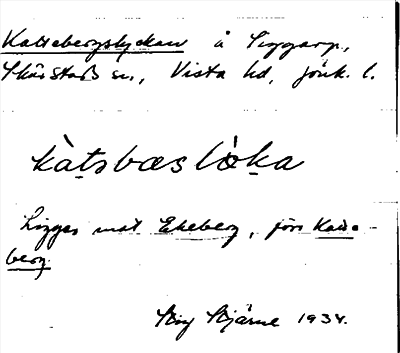 Kattebergslyckan å Siggarp,
Skärstad sn., Vista hd, Jönk. l.
kàtsbæslö̀ka
Ligger mot Ekeberg, förr Katte-
berg.
Stig Stjärne 1934.